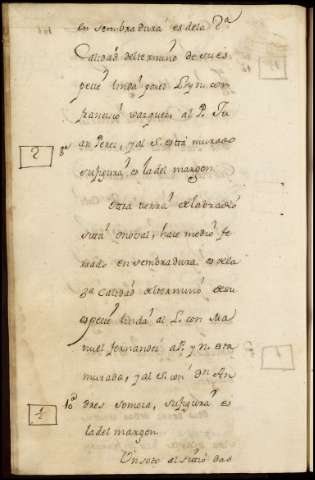 en sembradura es dela 2ª
Calidad del termino de su es
pecie linda por el L. y N. con
francisco vazquez, al P. Ju
an Perez, y al S. está murado
su figura es la del margen
2 9ª
Otra tierra de labradio
sita hace medio fe
rrado en sembradura es de la
3ª Calidad del termino de su
especie linda al L. con Ma
nuel fernandez a P. y N. esta
murada, y al S. con Dn An
10ª dres Somoza, su figura es
la del margen
Un soto al sitio das